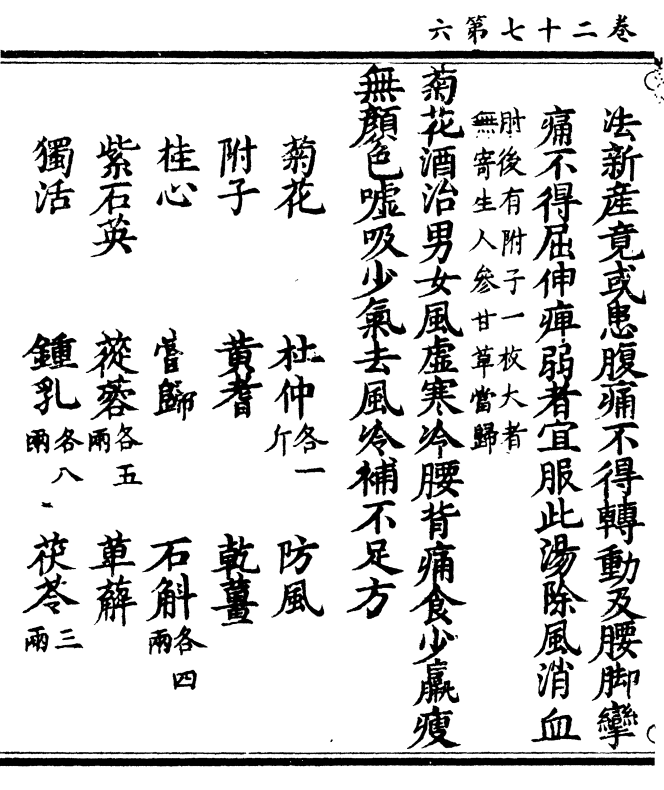 卷二十七第六
法新産竟或患腹痛不得轉動及腰脚攣
痛不得屈伸痺弱者宜服此湯除風消血
肘後有附子一枚大者
無寄生人參甘草當歸
菊花酒治男女風虛寒冷腰背痛食少羸瘦
無顏色噓吸少氣去風冷補不足方
菊花 杜仲各一斤 防風
附子 黃耆 乾薑
桂心 當歸 石斛各四兩
紫石英 蓯蓉各五兩 萆薢
獨活 鍾乳各八兩 茯苓三兩